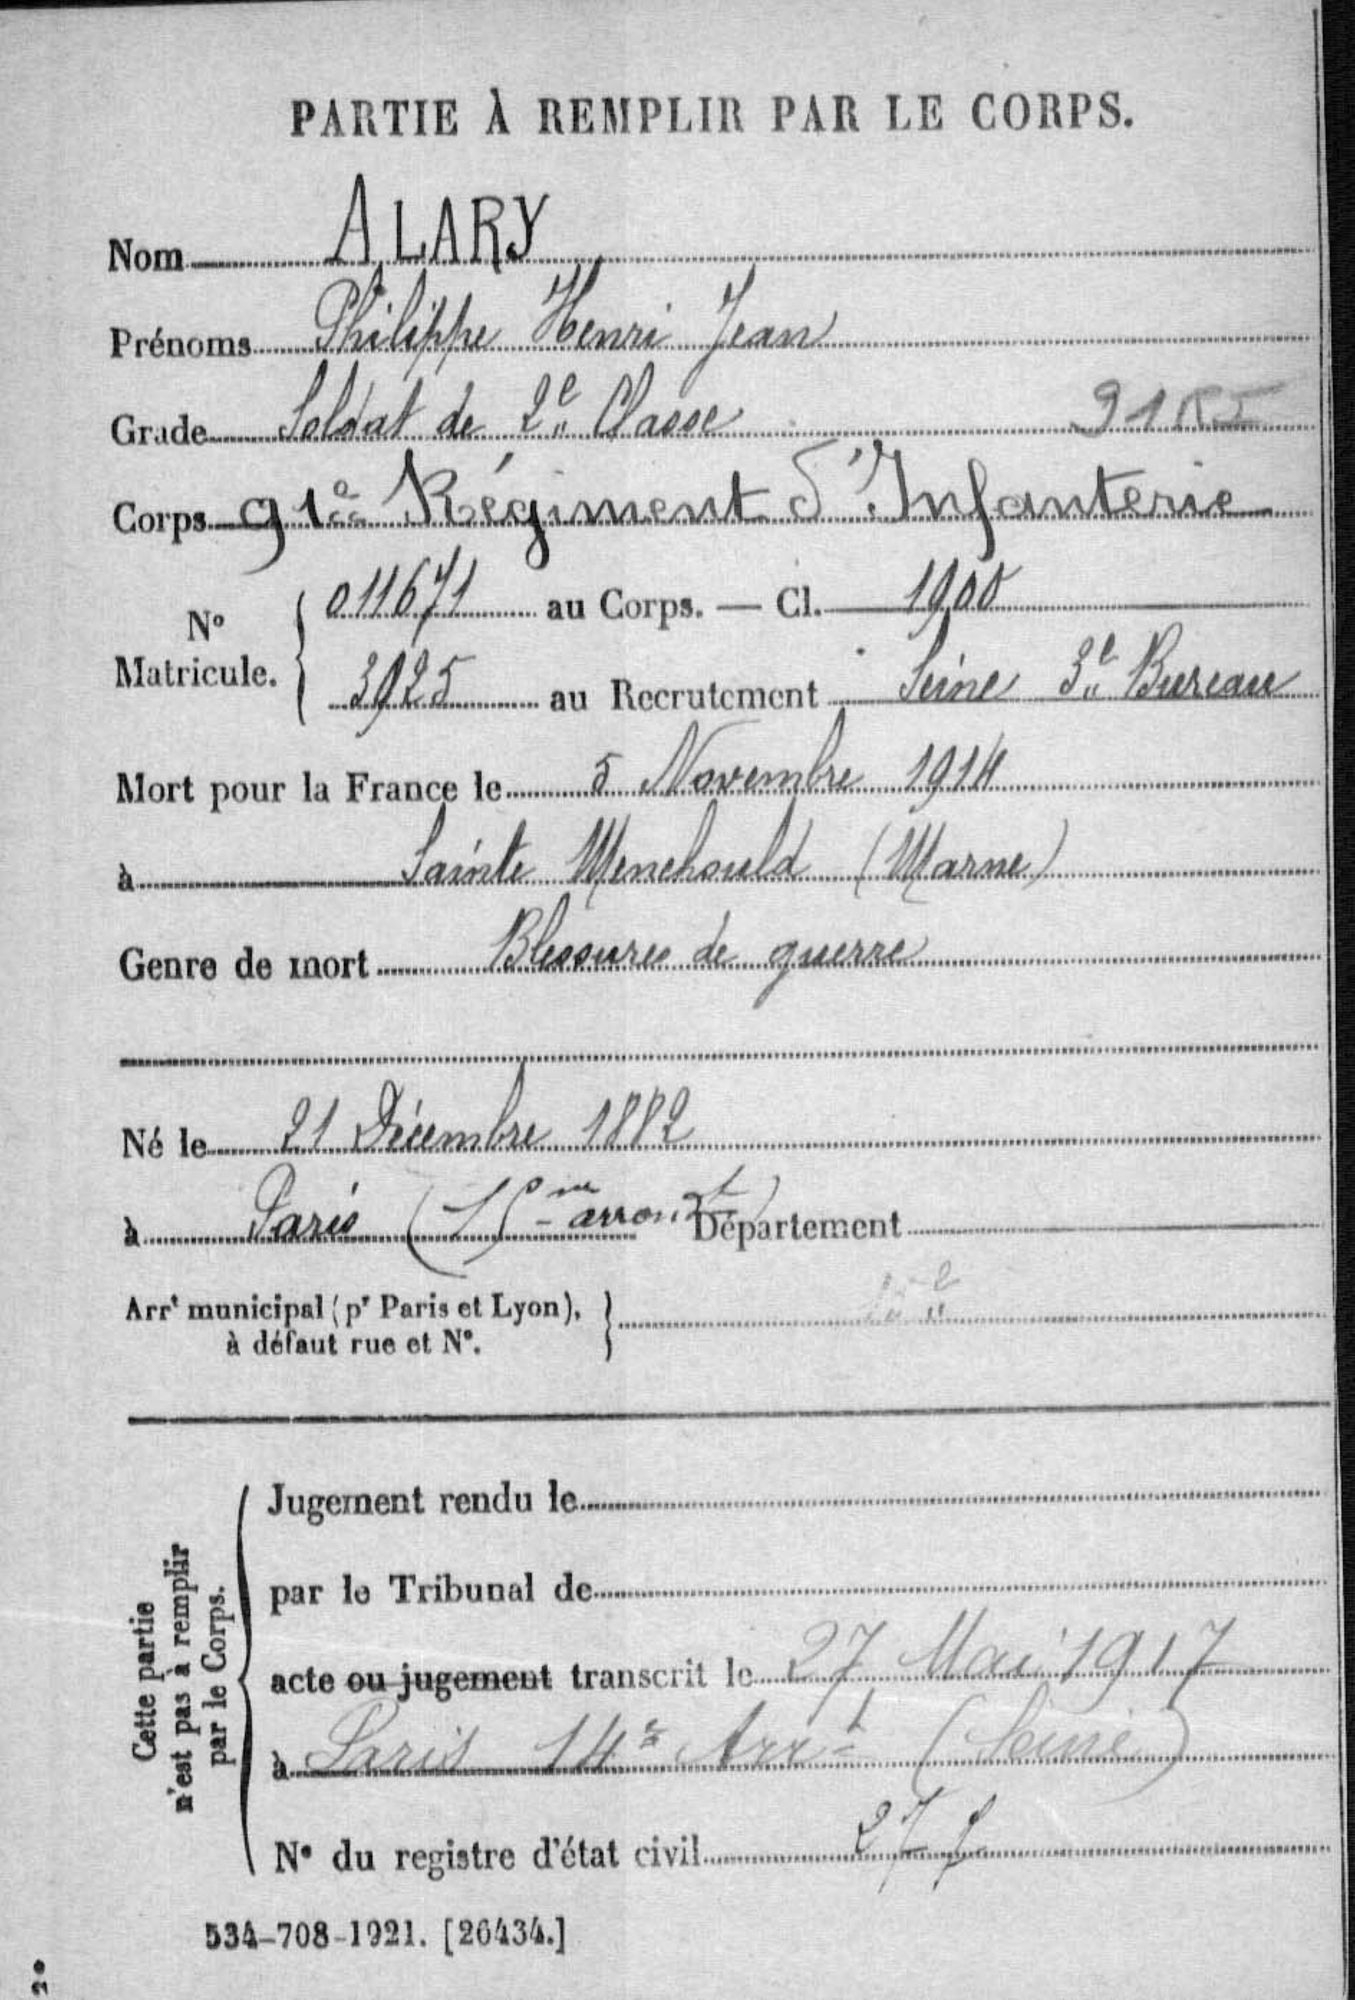 PARTIE À REMPLIR PAR LE CORPS.
Nom ALARY
Prénoms Philippe Henri Jean
Grade Soldat de 2e Classe 91 RI
Corps 91e Régiment d'Infanterie
No Matricule. { 011671 au Corps. — Cl. 1900
3925 au Recrutement Seine 3e Bureau
Mort pour la France le 5 Novembre 1914
à Sainte Menehould (Marne)
Genre de mort Blessures de guerre
Né le 21 Décembre 1882
à Paris ( me arrondt) Département
Arrt municipal (pr Paris et Lyon), }
à défaut rue et No.
Cette partie
n'est pas à remplir
par le Corps.
Jugement rendu le
par le Tribunal de
acte ou jugement transcrit le 27 Mai 1917
à Paris 14e Arrt (Seine)
No du registre d'état civil
534-708-1921. [26434.]
2°